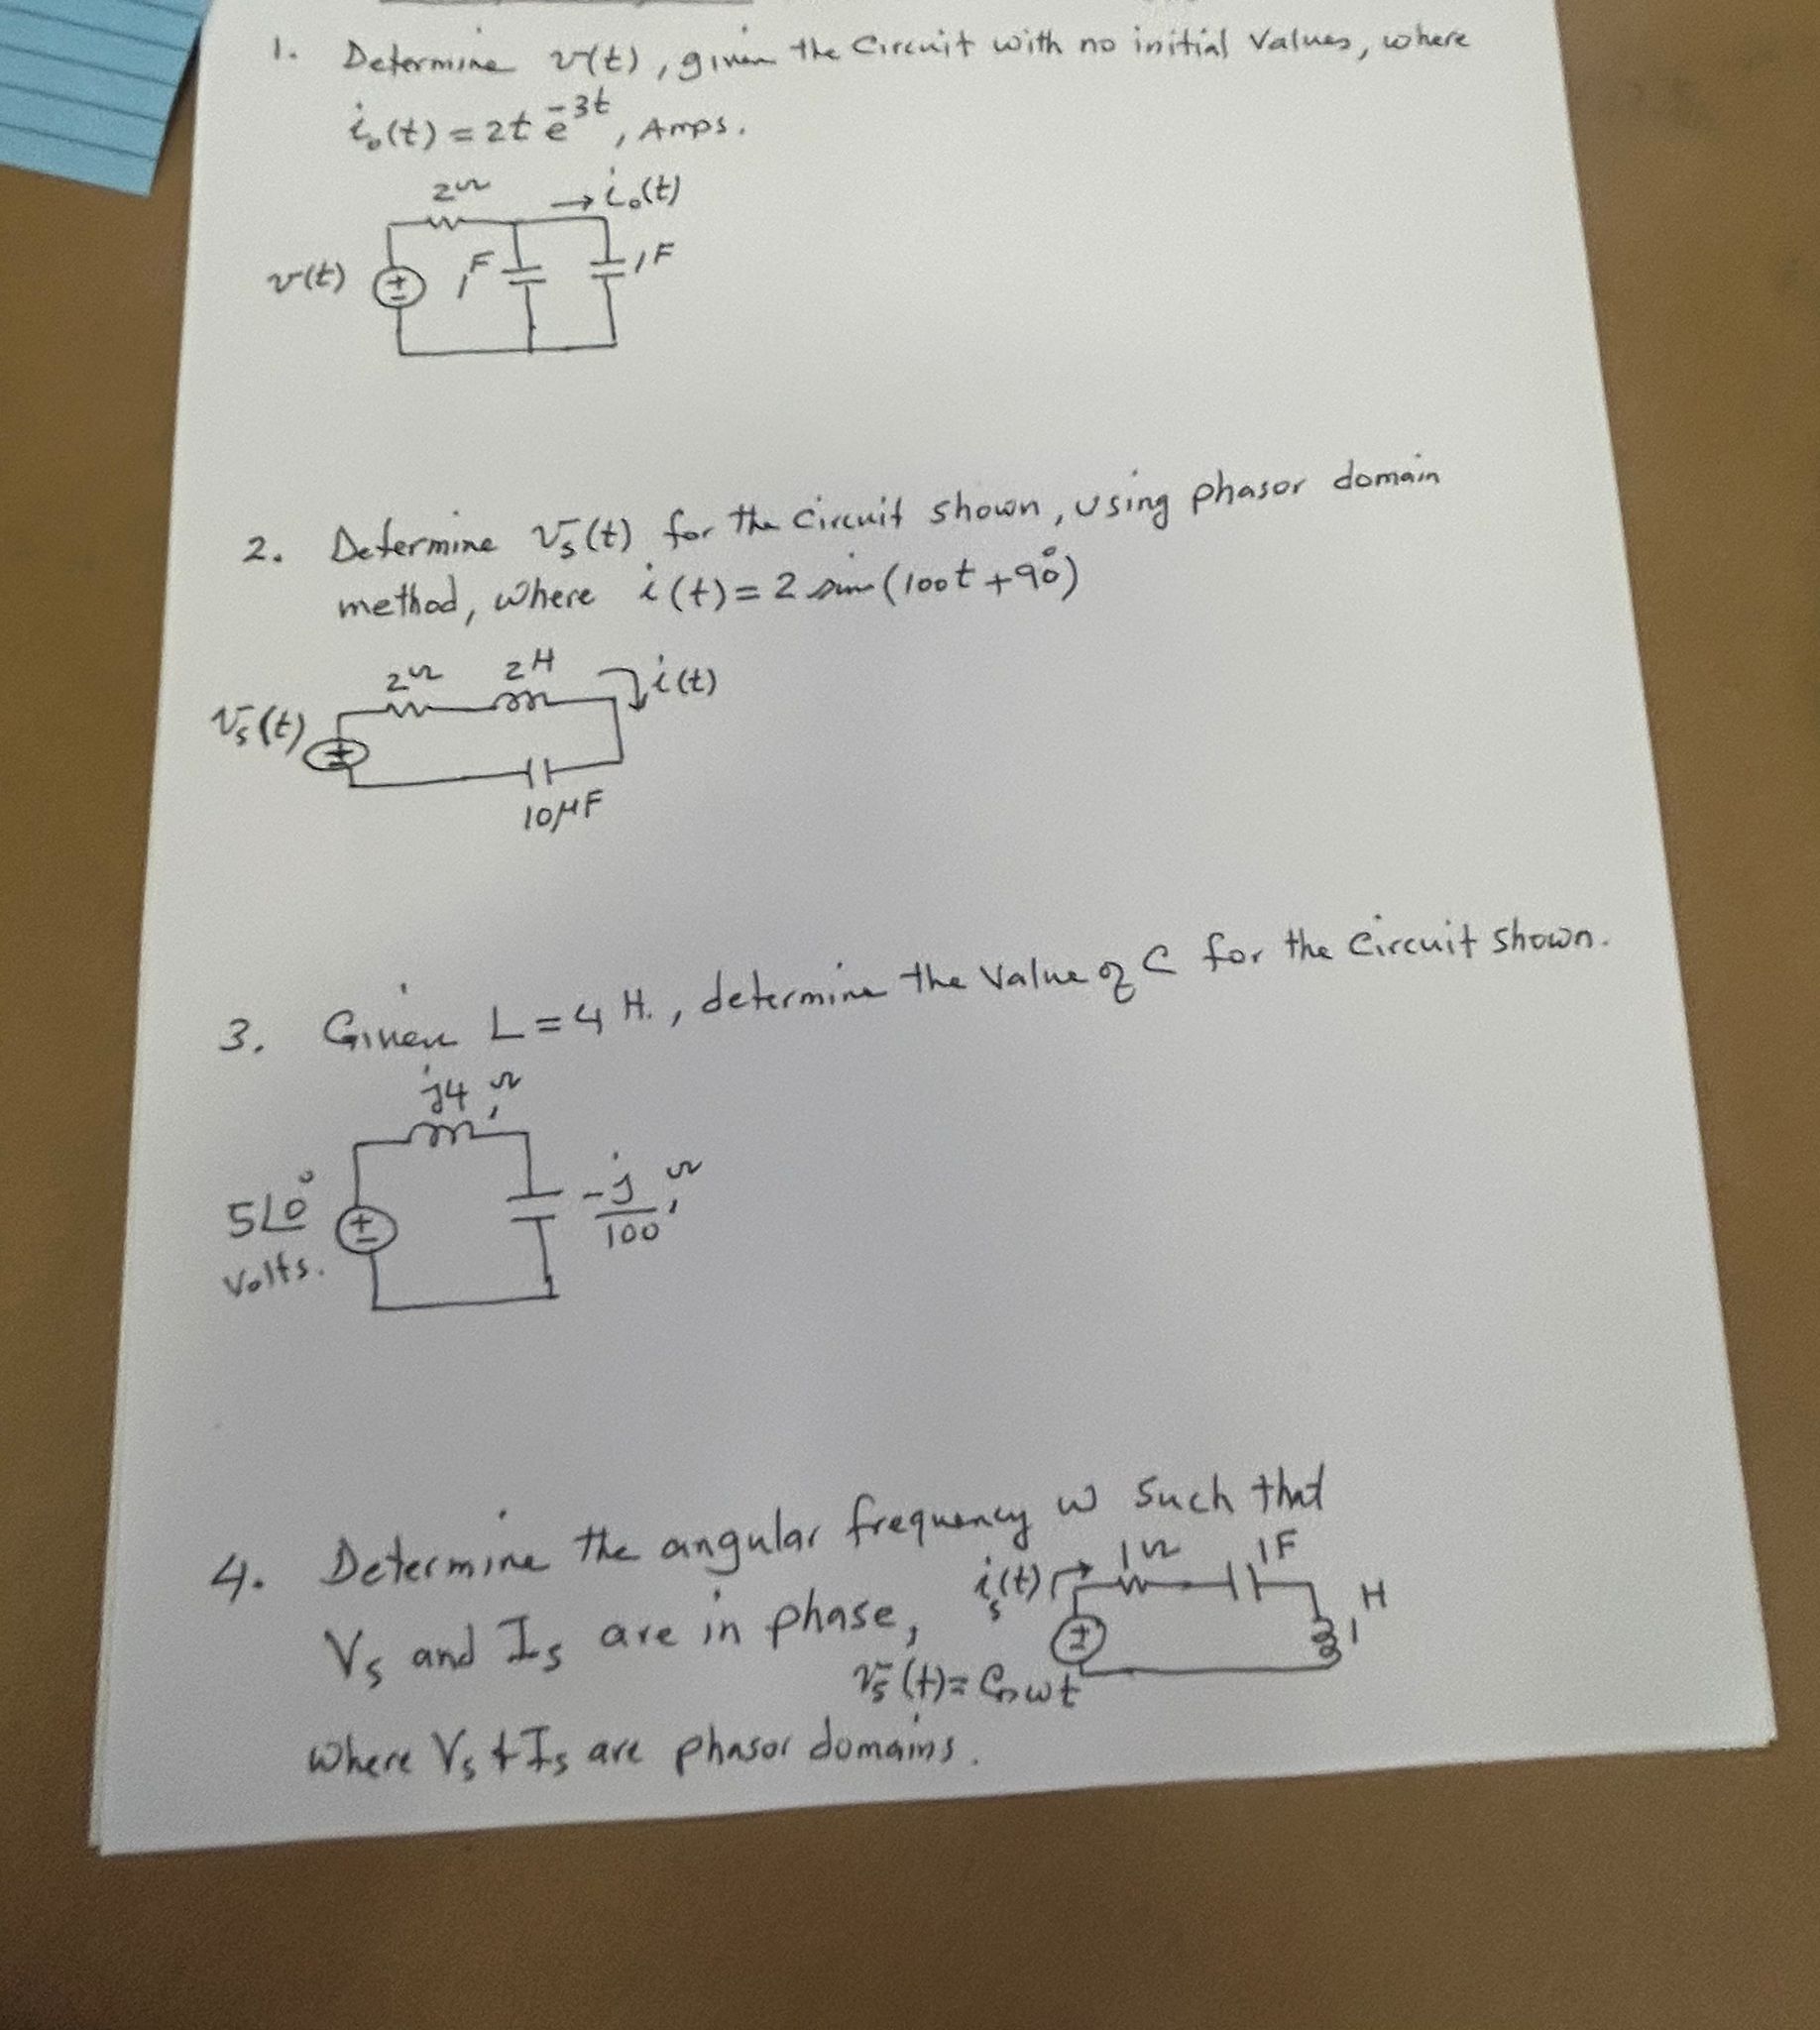 1. Determine v(t), given the circuit with no initial values, where
i₀(t) = 2t e^-3t, Amps.
2Ω → i₀(t)
v(t) + - 1F 1F
2. Determine vs(t) for the circuit shown, using phasor domain
method, where i(t) = 2 sin(100t + 90°)
2Ω 2H i(t)
vs(t) + -
10μF
3. Given L = 4 H., determine the value of C for the circuit shown.
j4, Ω
5∠0° + - -j/100, Ω
volts.
4. Determine the angular frequency ω such that
is(t) → 1Ω 1F
Vs and Is are in phase, + - 1H
vs(t) = Cos ωt
where Vs & Is are phasor domains.